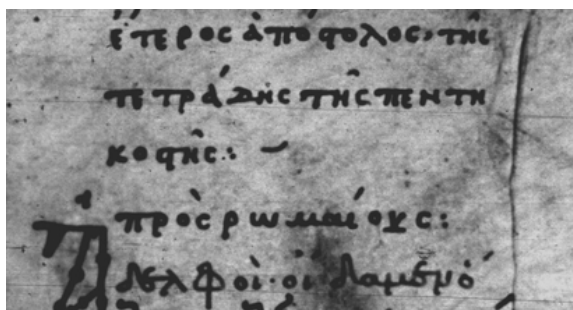 ἕτερος ἀπόστολος, τῆς
τετράδης τῆς πεντη
κοστῆς: ~
πρὸς ῥωμαίους:
Ἀδελφοὶ· οἱ